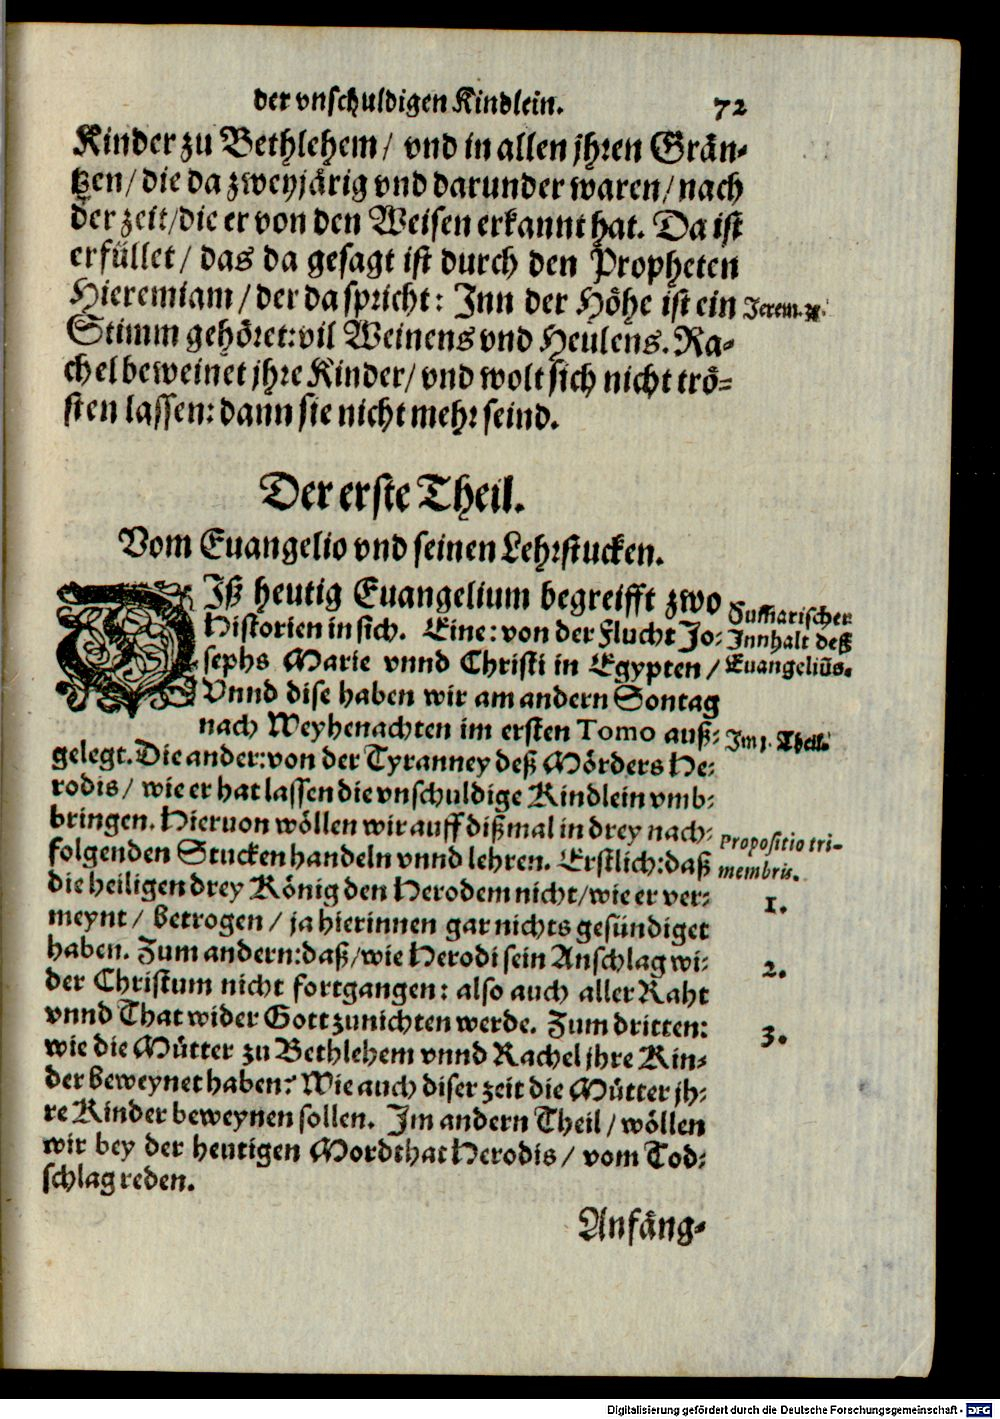 der vnschuldigen Kindlein. 72
Kinder zu Bethlehem/ vnd in allen jhren Grän-
tzen/ die da zweyjärig vnd darunder waren/ nach
der zeit/ die er von den Weisen erkannt hat. Da ist
erfüllet/ das da gesagt ist durch den Propheten
Hieremiam/ der da spricht: Inn der Höhe ist ein
Jerem.
Stimm gehöret: vil Weinens vnd Heulens. Ra-
chel beweinet jhre Kinder/ vnd wolt sich nicht trö-
sten lassen: dann sie nicht mehr seind.
Der erste Theil.
Vom Euangelio vnd seinen Lehrstucken.
DIß heutig Euangelium begreifft zwo
Historien in sich. Eine: von der Flucht Jo-
sephs Marie vnnd Christi in Egypten/
Vnnd dise haben wir am andern Sontag
nach Weyhenachten im ersten Tomo auß-
gelegt. Die ander: von der Tyranney deß Mörders He-
rodis/ wie er hat lassen die vnschuldige Kindlein vmb-
bringen. Hieruon wöllen wir auff dißmal in drey nach-
folgenden Stucken handeln vnnd lehren. Erstlich: daß
die heiligen drey König den Herodem nicht/ wie er ver-
meynt/ betrogen/ ja hierinnen gar nichts gesündiget
haben. Zum andern: daß/ wie Herodi sein Anschlag wi-
der Christum nicht fortgangen: also auch aller Raht
vnnd That wider Gott zunichten werde. Zum dritten:
wie die Mütter zu Bethlehem vnnd Rachel jhre Kin-
der beweynet haben? Wie auch diser zeit die Mütter jh-
re Kinder beweynen sollen. Im andern Theil/ wöllen
wir bey der heutigen Mordthat Herodis/ vom Tod-
schlag reden.
Sum̃arischer
Innhalt deß
Euangeliũs.
Im 1. Theil.
Propositio tri-
membris.
1.
2.
3.
Anfäng-
Digitalisierung gefördert durch die Deutsche Forschungsgemeinschaft - DFG